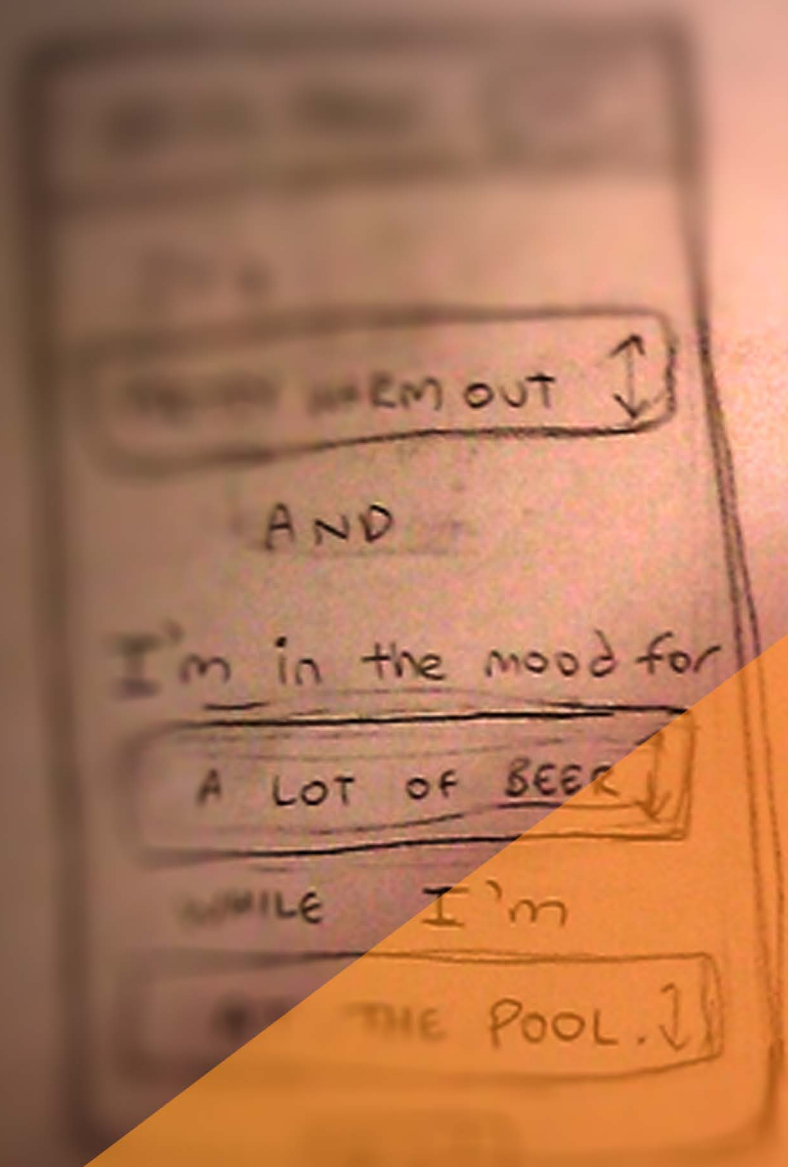 WARM OUT
AND
I'm in the mood for
A LOT OF BEER
WHILE I'm
THE POOL.